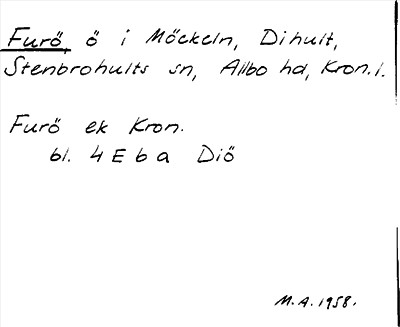 Furö, ö i Möckeln, Dihult,
Stenbrohults sn, Allbo hd, Kron. l.
Furö ek Kron.
bl. 4 E b a Diö
M.A. 1958.